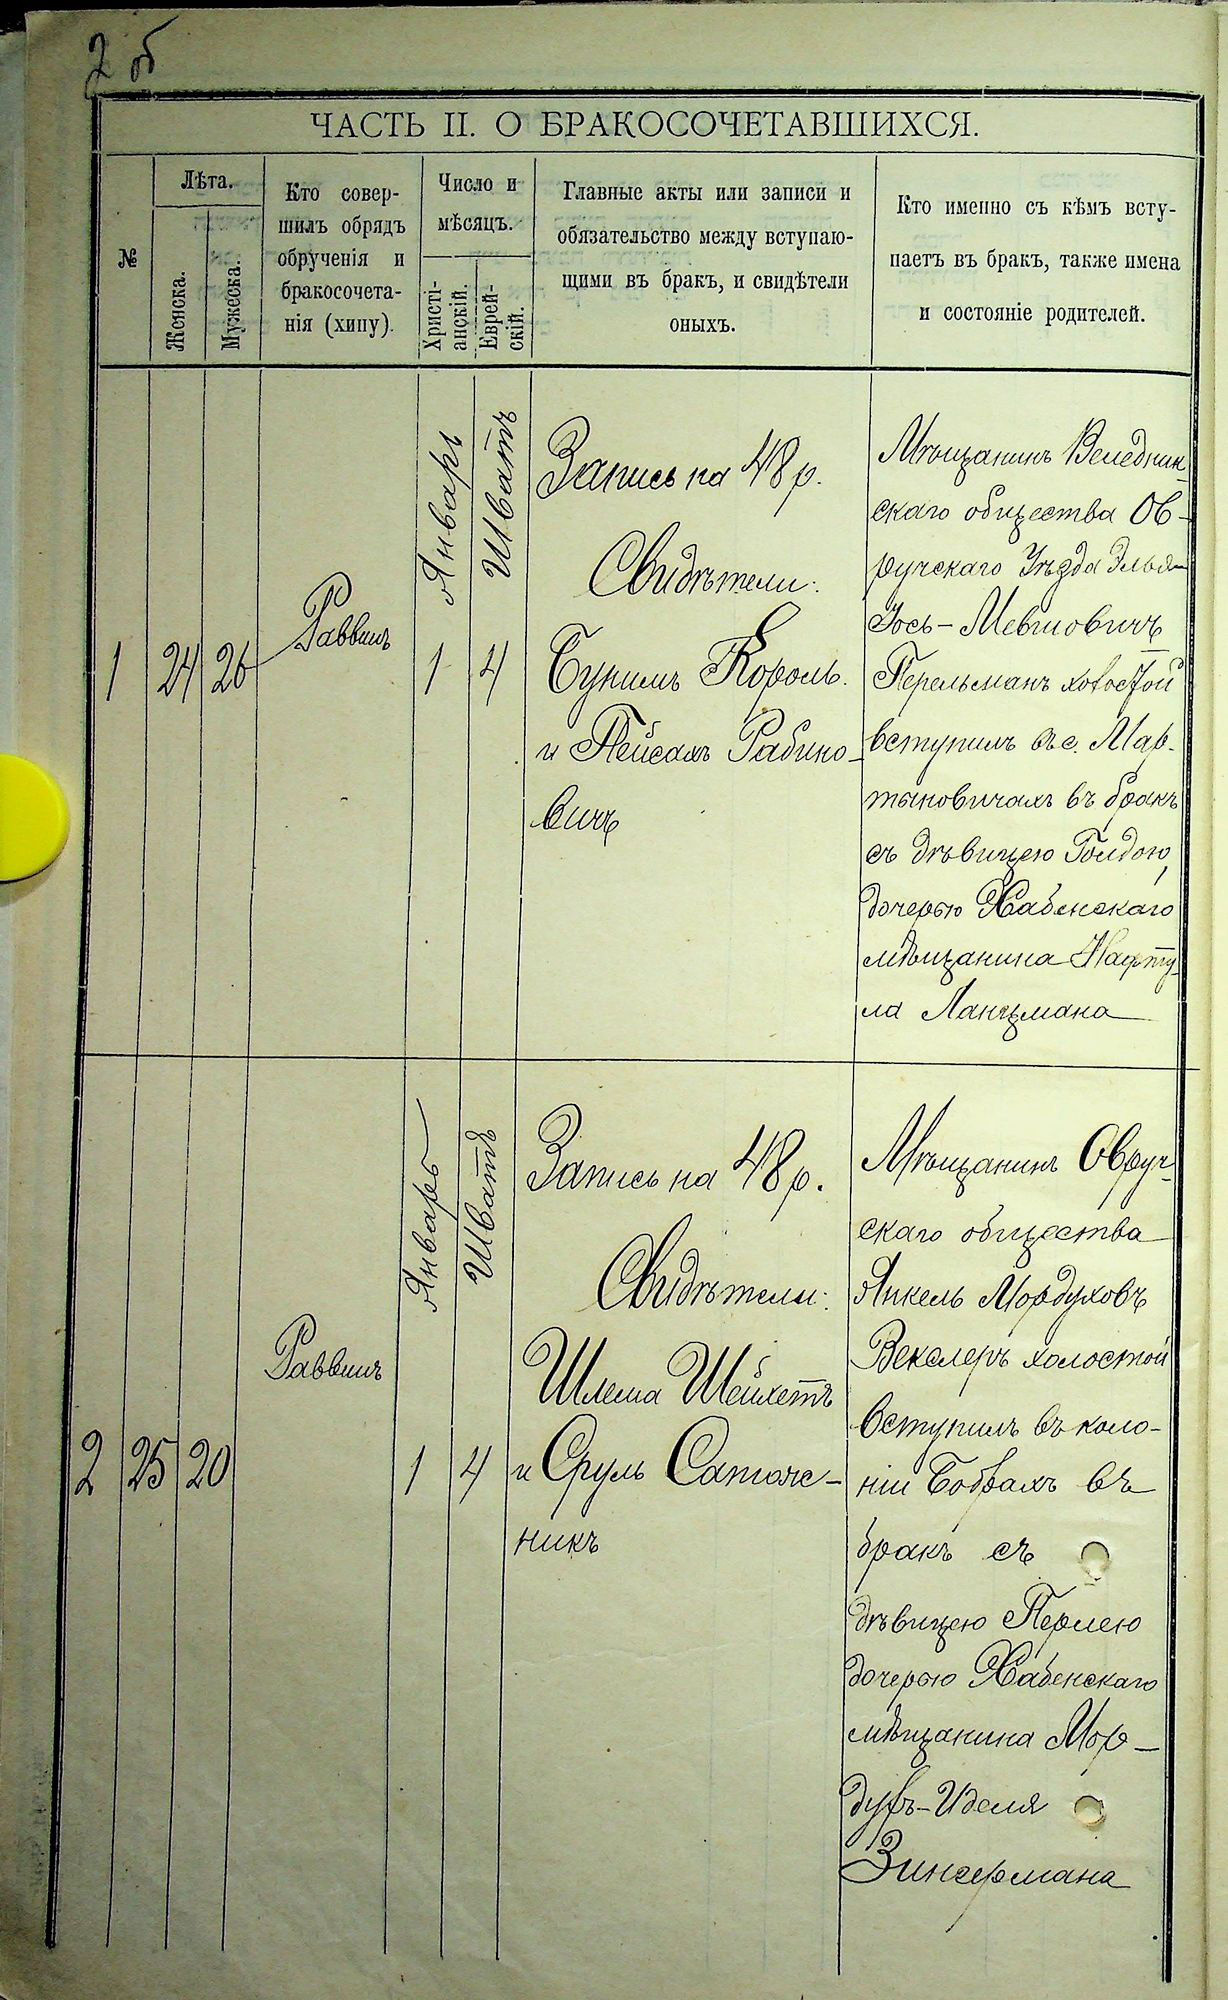 2 об
ЧАСТЬ II. О БРАКОСОЧЕТАВШИХСЯ.
№
Лѣта.
Женска.
Мужеска.
Кто совер-
шилъ обрядъ
обрученія и
бракосочета-
нія (хипу).
Число и
мѣсяцъ.
Христі-
анскій.
Еврей-
скій.
Главные акты или записи и
обязательство между вступаю-
щими въ бракъ, и свидѣтели
оныхъ.
Кто именно съ кѣмъ всту-
паетъ въ бракъ, также имена
и состояніе родителей.
1
24
26
Раввинъ
Январь
1
Шватъ
4
Запись на 48 р.
Свидѣтели:
Бунимъ Король
и Пейсахъ Рабино-
вичъ
Мѣщанинъ Веледник-
скаго общества Ов-
ручскаго Уѣзда Элья-
Іось-Мевшовичъ
Перельманъ холостой
вступилъ въ с. Мар-
тыновичахъ въ бракъ
съ дѣвицею Голдою,
дочерью Хабенскаго
мѣщанина Нафту-
ла Ланцмана
2
25
20
Раввинъ
Январь
1
Шватъ
4
Запись на 48 р.
Свидѣтели:
Шлема Шейхетъ
и Сруль Сапож-
никъ
Мѣщанинъ Овруч-
скаго общества
Янкель Мордуховъ
Векслеръ холостой
вступилъ въ коло-
ніи Бобрахъ въ
бракъ съ
дѣвицею Перлею
дочерью Хабенскаго
мѣщанина Мор-
духъ-Иделя
Зингермана